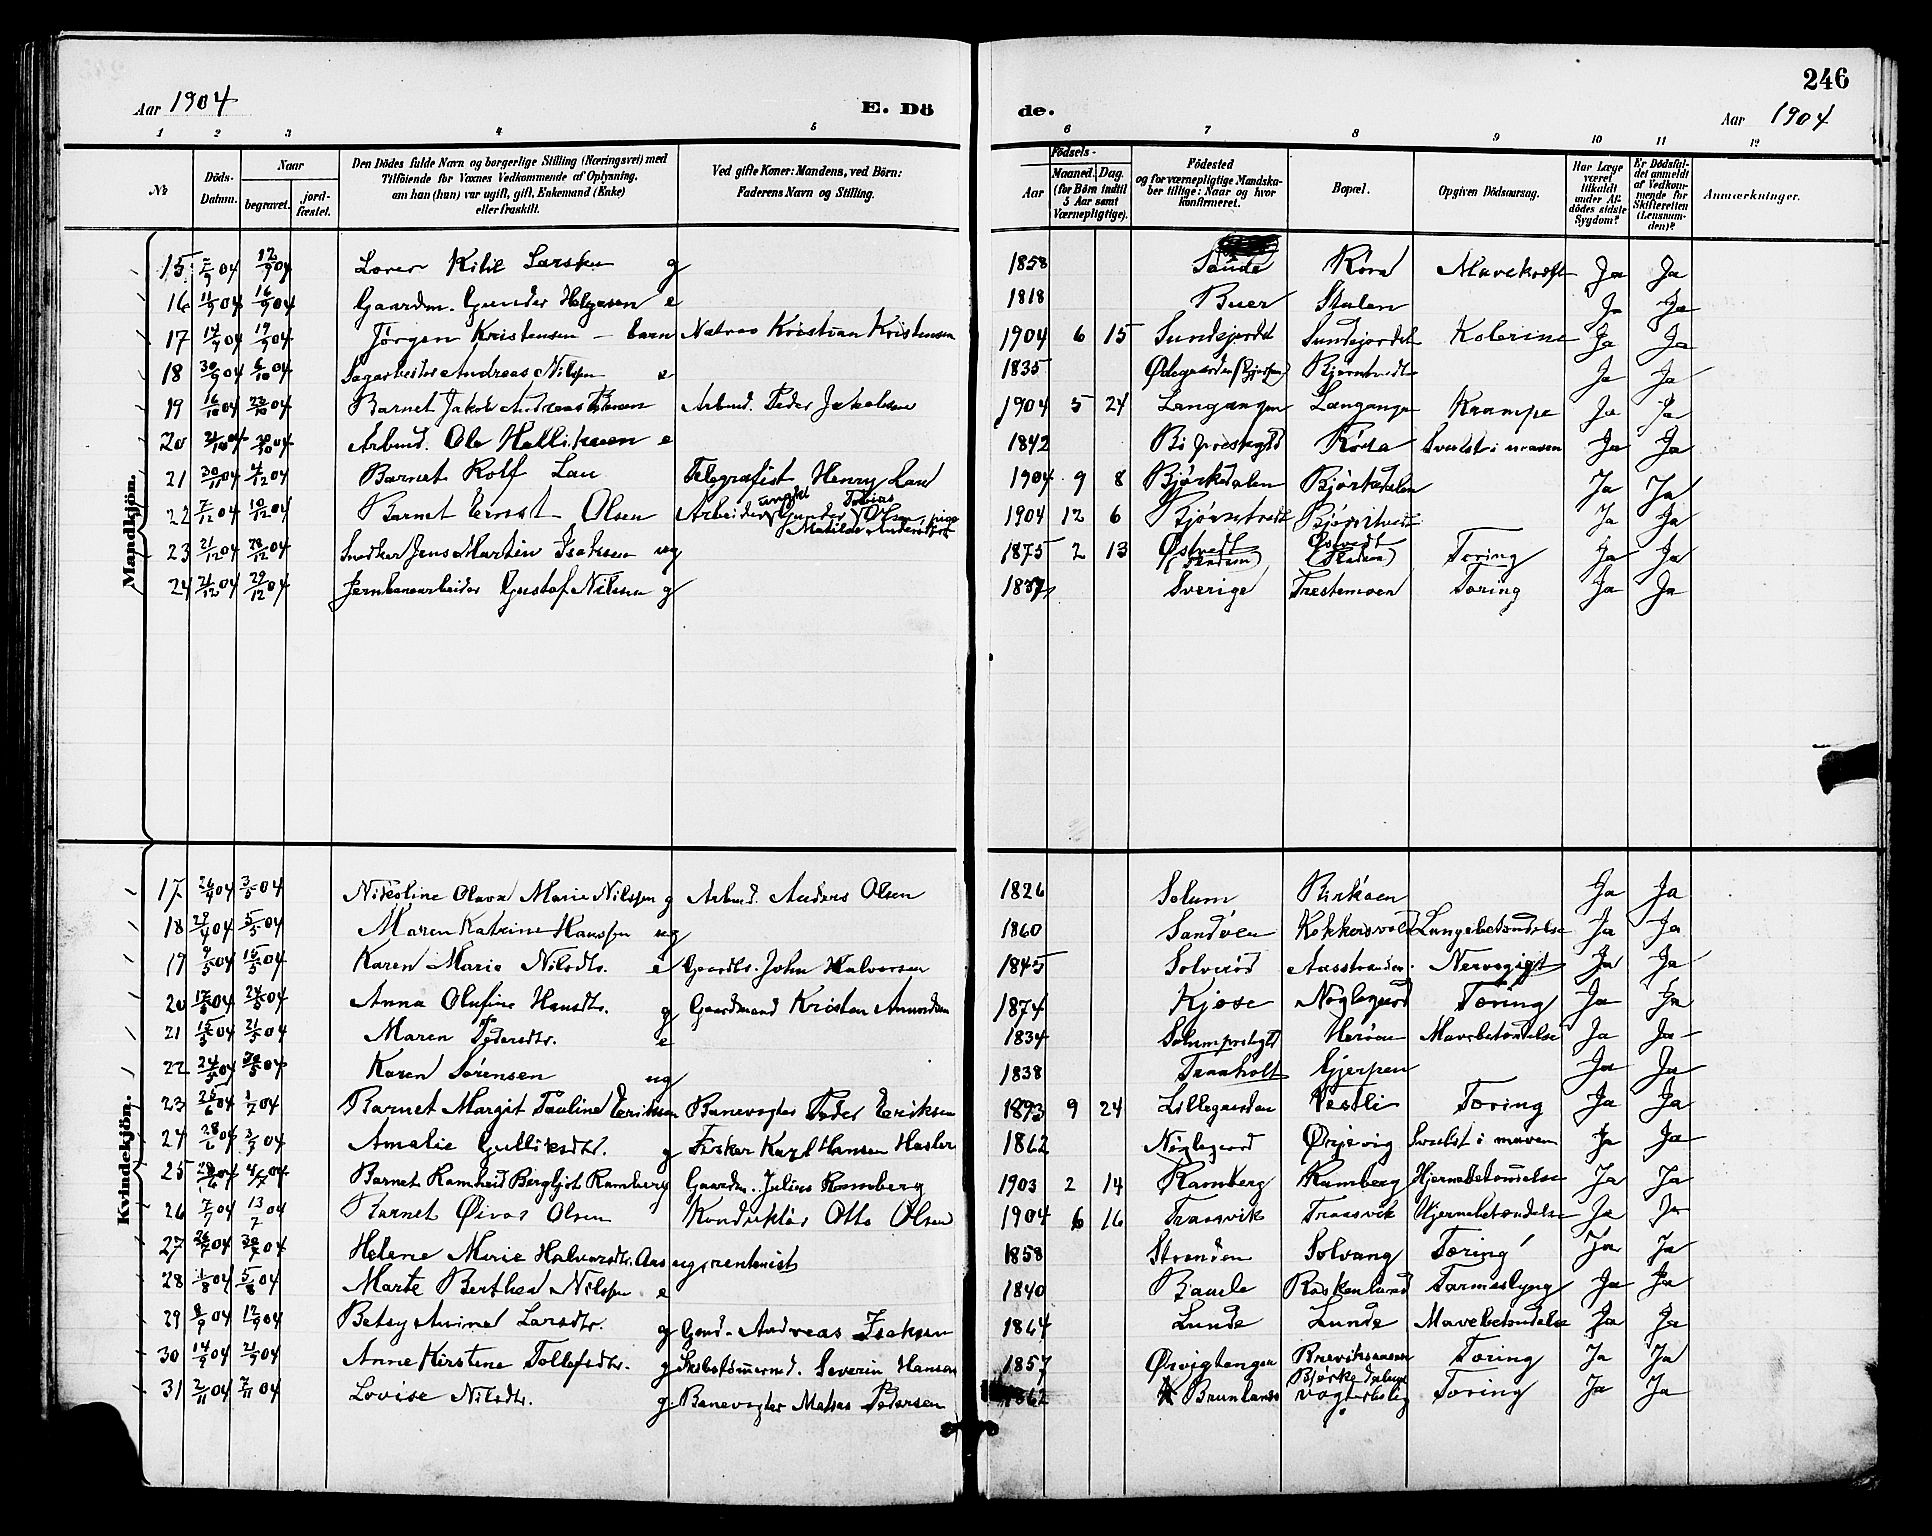 246
Aar 1904 E. Dö de. Aar 1904
1 2 3 4 5 6 7 8 9 10 11 12
No
Döds-Datum.
Naar
begravet.
jord-fæstet.
Den Dödes fulde Navn og borgerlige Stilling (Næringsvei) med Tilföiende for Voxnes Vedkommende af Oplysning, om han (hun) var ugift, gift, Enkemand (Enke) eller fraskilt.
Ved gifte Koner: Mandens, ved Börn: Faderens Navn og Stilling.
Födsels-
Aar
Maaned. Dag.
(for Börn indtil 5 Aar samt Værnepligtige).
Födested og for værnepligtige Mandskaber tillige: Naar og hvor konfirmeret.
Bopæl.
Opgiven Dödsaarsag.
Har Læge været tilkaldt under Afdödes sidste Sygdom?
Er Dödsfaldet anmeldt af Vedkommende for Skifteretten (Lensmanden)?
Anmærkninger.
Mandkjön.
15 7/9 04 12/9 04 Kitil Larsen g 1858 Saude Röra Mavekræft Ja Ja
16 11/9 04 16/9 04 Gaardm. Gunder Helgesen e 1818 Buer Stulen Ja Ja
17 14/9 04 19/9 04 Jörgen Kristensen - barn Matros Kristian Kristensen 1904 6 15 Sundejordet Sundejordet Kolerine Ja Ja
18 30/9 04 6/10 04 Sagarbeider Andreas Nilsen e 1835 Ødegaarden Bjørntvedt Ja Ja
19 16/10 04 23/10 04 Barnet Jakob Andreas Arbmd. Peder Jakobsen 1904 5 24 Langangen Langangen Krampe Ja Ja
20 04 30/10 04 Arbmd. Ole Halliksen e 1842 Bö prestegld Röra Svulst i maven Ja Ja
21 30/11 04 4/12 04 Barnet Rolf Lau Telegrafist Henry Lau 1904 9 8 Bjørkedalen Bjørkedalen Ja Ja
22 7/12 04 10/12 04 Barnet Ernst Olsen Arbeider ungkl Gunder Tobias Olsen, pige Matilde 1904 12 6 Bjørntvedt Bjørntvedt Ja Ja
23 21/12 04 28/12 04 Snedker Jens Martin Isaksen ug 1875 2 13 Østvedt Østvedt Tæring Ja Ja
24 21/12 04 29/12 04 Jernbanearbeider Gustaf Nilsen g Sverige Trestemoen Tæring Ja Ja
Kvindekjön.
17 26/4 04 3/5 04 Nikoline Olava Marie Nilssen g Arbmd. Anders Olsen 1826 Solum Ja Ja
18 29/4 04 5/5 04 Maren Katrine Hanssen ug 1860 Sandöen Kokkersvold Lungebetændelse Ja Ja
19 9/5 04 15/5 04 Karen Marie Nilsdtr. e Gaardbr. John Halvorsen 1845 Solveröd Aasstranden Nervegigt Ja Ja
20 17/5 04 24/5 04 Anna Olufine Hansdtr. g Gaardmand Kristen Amundsen 1874 Kjose Nøglegaard Tæring Ja Ja
21 15/5 04 21/5 04 Maren Pedersdtr. e 1834 Solum prestegld Heröen Mavebetændelse Ja Ja
22 24/5 04 30/5 04 Karen Sörensen ug 1838 Traaholt Gjerpen Ja Ja
23 25/6 04 1/7 04 Barnet Margit Pauline Eriksen Banevogter Peder Eriksen 1893 9 24 Lillegaarden Vestli Tæring Ja Ja
24 28/6 04 3/7 04 Amalie Gulliksdtr. g Fisker Karl Hansen Hasler 1862 Nøglegaard Ørjevig Svulst i maven Ja Ja
25 28/6 04 4/7 04 Barnet Ramheid Bergljot Ramberg Gaardm. Julius Ramberg 1903 2 14 Ramberg Ramberg Hjernebetændelse Ja Ja
26 7/7 04 13/7 04 Barnet Øivor Olsen Konduktör Otto Olsen 1904 6 16 Traasvik Traasvik Hjernebetændelse Ja Ja
27 26/7 04 30/7 04 Helene Marie Halvorsdtr. Aas ug, rentenist 1858 Stranden Solvang Tæring Ja Ja
28 1/8 04 5/8 04 Marte Berthea Nilssen e 1840 Bamle Tarmeslyng Ja Ja
29 8/9 04 12/9 04 Betsy Amine Larsdtr. g Gmd. Andreas Isaksen 1864 Lunde Lunde Mavebetændelse Ja Ja
30 14/9 04 21/9 04 Anne Kirstine Tollefsdtr. g Skibstömmermd. Severin Hansen 1857 Ørvigtangen Tæring Ja Ja
31 2/11 04 7/11 04 Lovise Nilsdtr. g. Banevogter Matias Pedersen 1862 Brunlanes Bjørkedalens vogterbolig Tæring Ja Ja